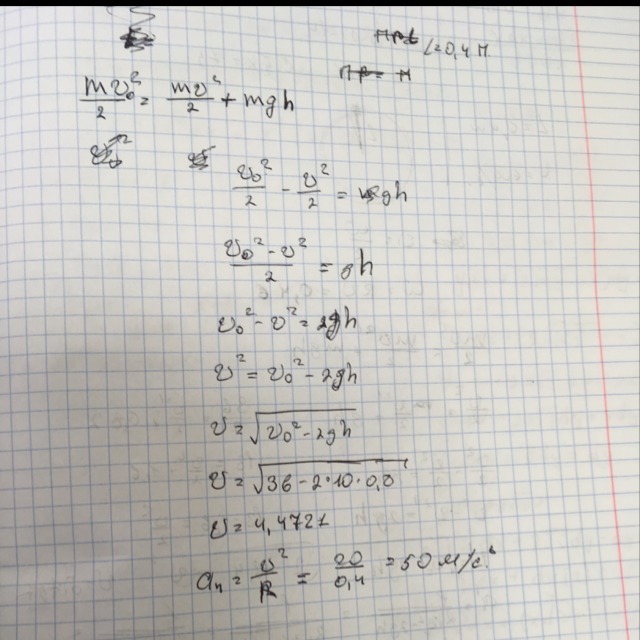 l=0,4 м
mv₀²/2 = mv²/2 + mgh
v₀²/2 - v²/2 = gh
(v₀² - v²)/2 = gh
v₀² - v² = 2gh
v² = v₀² - 2gh
v = √(v₀² - 2gh)
v = √(36 - 2·10·0,8)
v = 4,4721
aₙ = v²/R = 20/0,4 = 50 м/с²